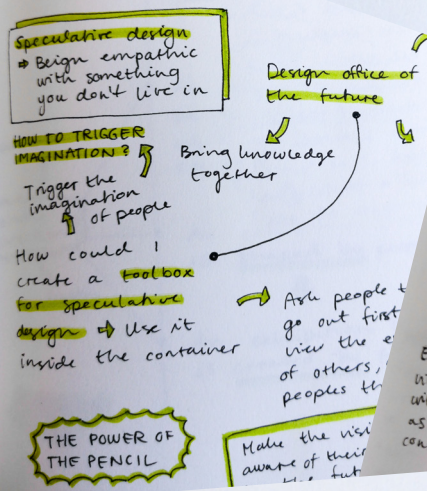 Speculative design
⇒ Beign empathic
with something
you don't live in
Design office of
the future
HOW TO TRIGGER
IMAGINATION?
Bring knowledge
together
Trigger the
imagination
of people
How could I
create a toolbox
for speculative
design ⇒ Use it
inside the container
Ask people
go out first
view the
of others,
peoples
THE POWER OF
THE PENCIL
Make the
aware of their
the